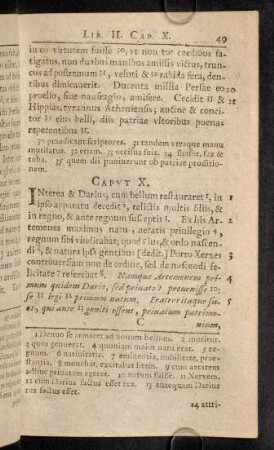 LIB. II. CAP. X. 49
in eo virtutem fuisse 30, ut non tot cædibus fa-
tigatus, non duabus manibus amissis victus, trun-
cus ad postremum 31, veluti & 32 rabida fera, den-
tibus dimicaverit. Ducenta millia Persæ eo 20
prœlio, sive naufragio, amisere. Cecidit & 21
Hippias, tyrannus Atheniensis, auctor & concitor
ejus belli, diis patriæ ultoribus pœnas
repetentibus
30 prædicant scriptores. 31 tandem utraque manu
mutilatus. 32 etiam. 33 occisus fuit.
35 quem dii punierunt ob patriæ proditio-
nem.
CAPUT X.
INterea & Darius, cum bellum restauraret 1, in 1
ipso apparatu decedit 2, relictis multis filiis, & 2
in regno, & ante regnum susceptis 3. Ex his Ar-
temenes maximus natu, ætatis privilegio 4,
regnum sibi vindicabat; quod jus, & ordo nascen-
di 5, & natura ipsa gentibus [dedit.] Porro Xerxes
controversiam non de ordine, sed de nascendi fe-
licitate 7 referebat 8. Namque Artemenem pri-
mum quidem Dario, sed privato 9 provenisse 10:
se 11 regi 12 primum natum. Fratres itaque su-
os, qui ante 13 geniti essent, privatum patrimo-
C nium,
1 Denuo se armaret ad novum bellum. 2 moritur.
3 quos genuerat. 4 quoniam maior natu erat.
6 nativitatis. 7 eminentia, nobilitate, præ-
stantia. 8 movebat, excitabat litem. 9 cum arctem
adhuc privatum ageret. 10 natum fuisse. 11 Xerxem.
12 cum Darius factus esset rex. 13 antequam Darius
rex factus esset.
14 attri-